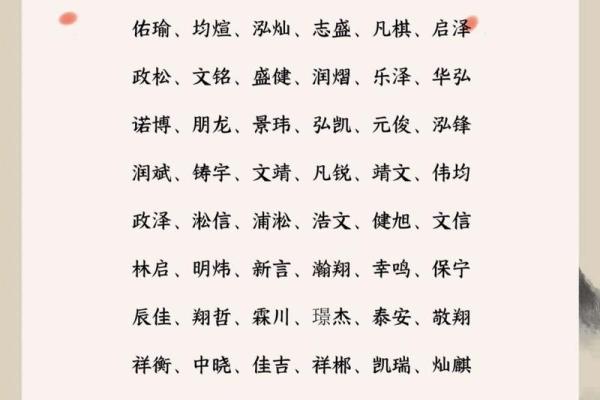 佑瑜、均煊、泓灿、志盛、凡棋、启泽
政松、文铭、盛健、润熠、乐泽、华弘
诺博、朋龙、景玮、弘凯、元俊、泓锋
润斌、铸宇、文靖、凡锐、靖文、伟均
政泽、淞信、浦淞、浩文、健旭、文信
林启、明炜、新言、瀚翔、幸鸣、保宁
辰佳、翔哲、霖川、璟杰、泰安、敬翔
祥衡、中晓、佳吉、祥郴、凯瑞、灿麒